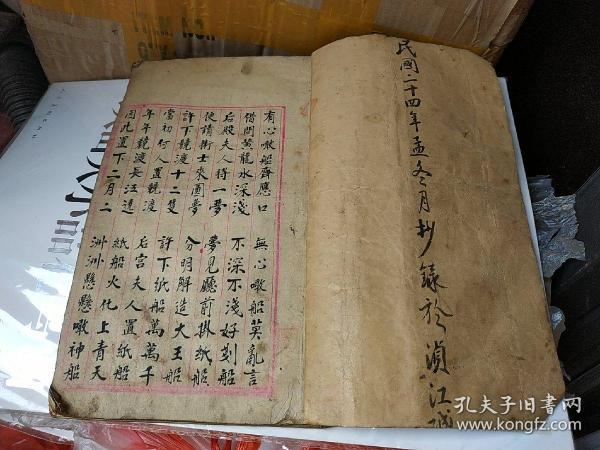 民國二十四年孟冬月抄錄於湞江
有心噉船齊應口　無心噉船莫亂言
借問黃龍水深淺　不深不淺好划船
后殿夫人得一夢　夢見廳前掛紙船
便請術士來圓夢　分明解造大王船
許下競渡十二隻　許下紙船萬萬千
當初何人置競渡　后宮夫人置紙船
年年競渡長江邊　紙船火化上青天
因此置下二月二　洲洲懸懸噉神船
孔夫子旧书网
www.kongfz.com